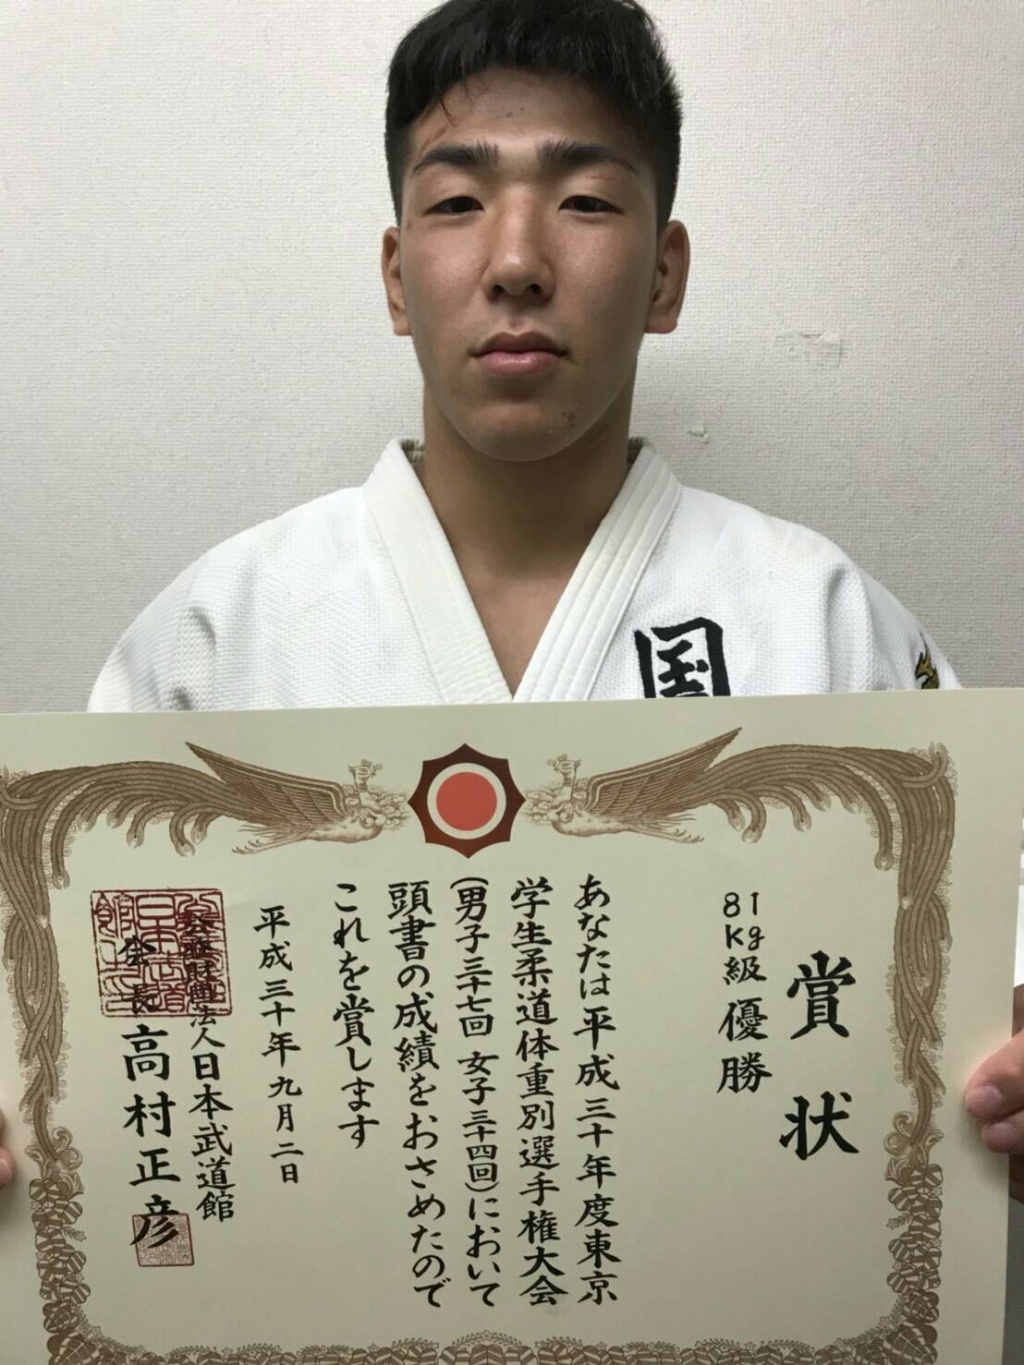 国
賞状
81kg級優勝
あなたは平成三十年度東京
学生柔道体重別選手権大会
(男子三十七回 女子三十四回)において
頭書の成績をおさめたので
これを賞します
平成三十年九月二日
公益財團法人日本武道館
会長 高村正彦